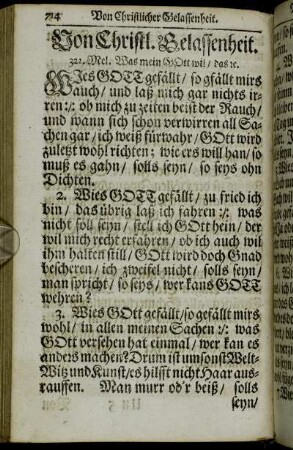 714 Von Christlicher Gelassenheit.
Von Christl. Gelassenheit.
322. Mel. Was mein GOtt wil / das ꝛc.
WJes GOTT gefällt / so gfällt mirs
auch / und laß mich gar nichts ir-
ren :/: ob mich zu zeiten beist der Rauch /
und wann sich schon verwirren all Sa-
chen gar / ich weiß fürwahr / GOtt wird
zuletzt wohl richten ; wie ers will han / so
muß es gahn / solls seyn / so seys ohn
Dichten.
2. Wies GOTT gefällt / zu fried ich
bin / das übrig laß ich fahren :/: was
nicht soll seyn / stell ich GOtt hein / der
wil mich recht erfahren / ob ich auch wil
ihm halten still / GOtt wird doch Gnad
bescheren / ich zweifel nicht / solls seyn /
man spricht / so seys / wer kans GOTT
wehren ?
3. Wies GOtt gefällt / so gefällt mirs
wohl / in allen meinen Sachen :/: was
GOtt versehen hat einmal / wer kan es
anders machen? Drum ist umsonst Welt-
Witz und Kunst / es hilfft nicht Haar aus-
rauffen. Man murr od'r beiß / solls
seyn /